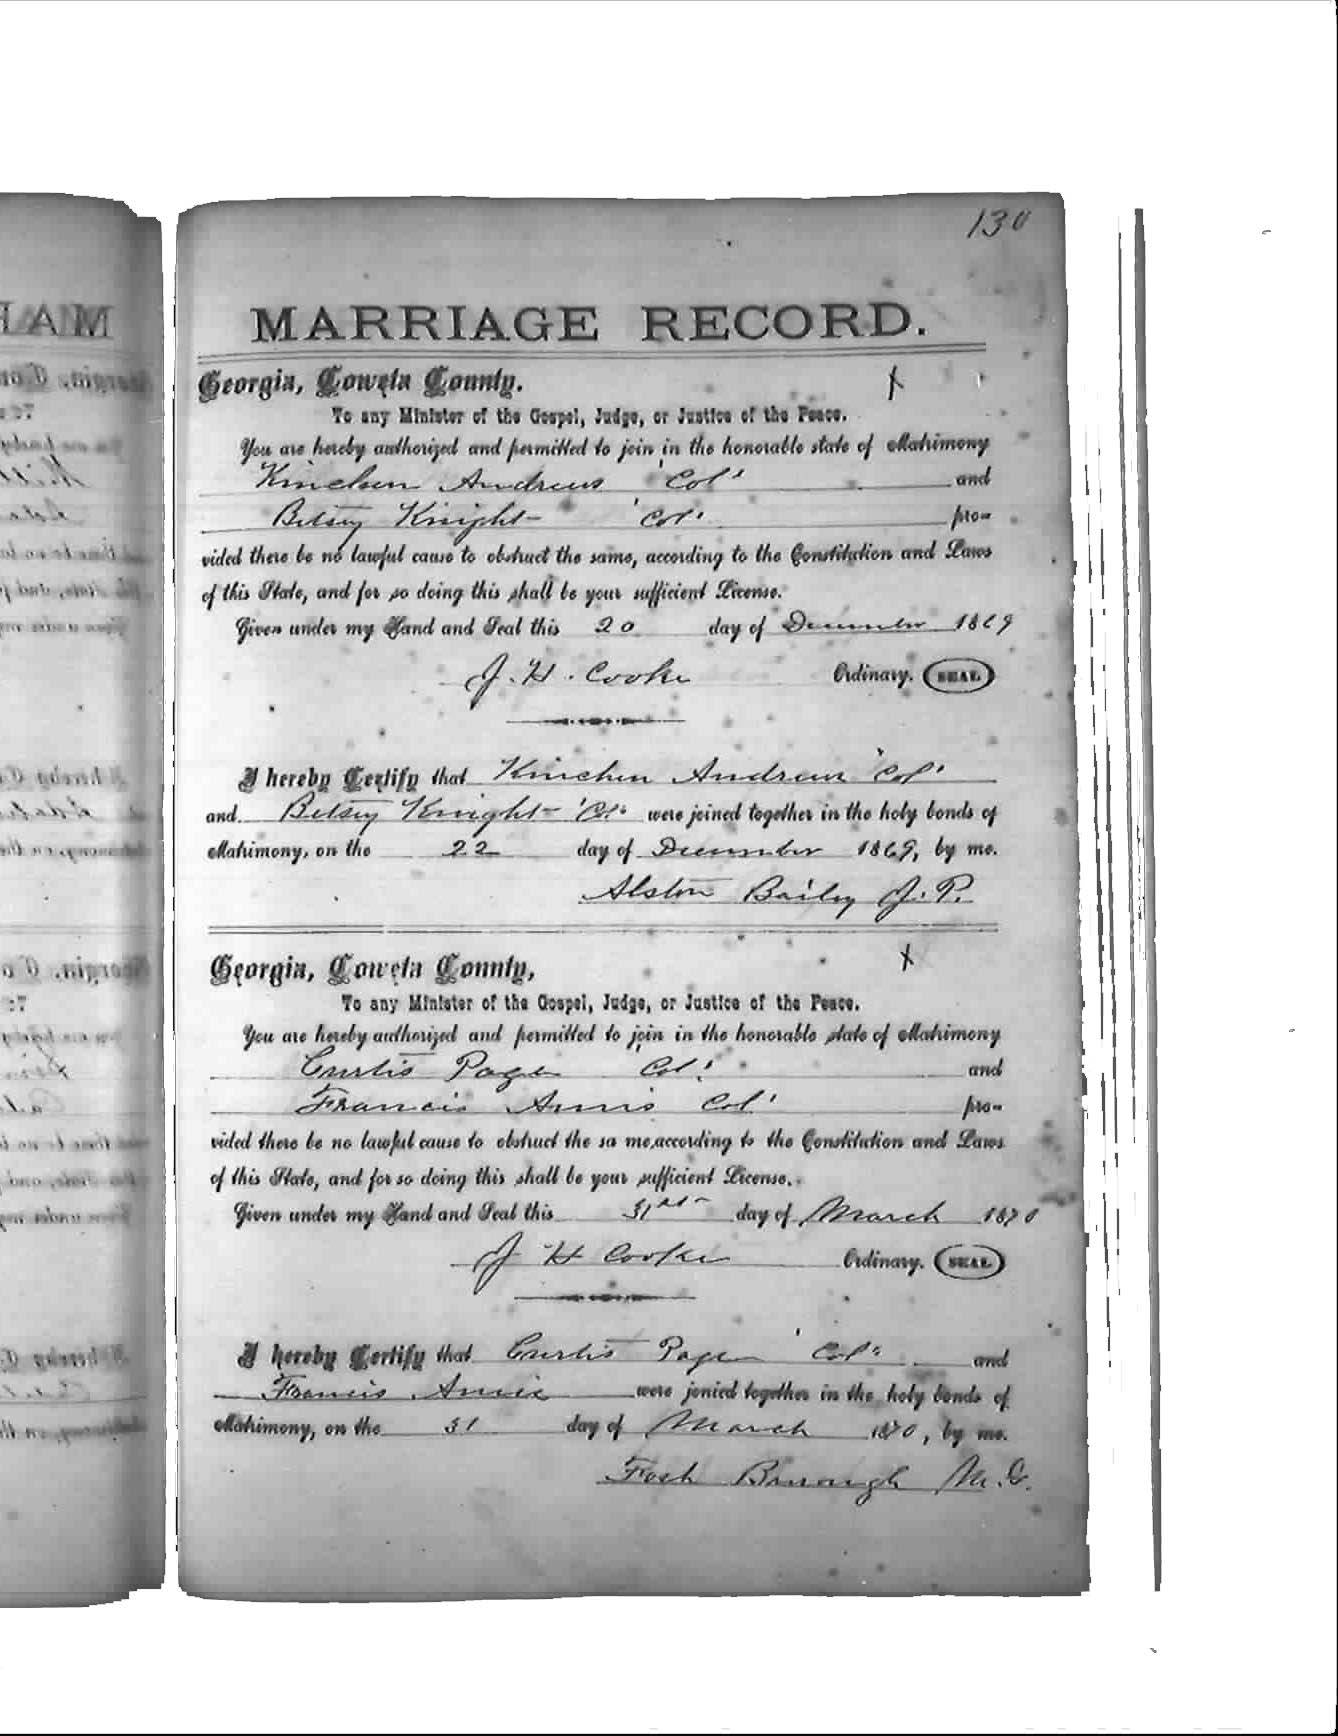 130
MARRIAGE RECORD.
Georgia, Coweta County.
To any Minister of the Gospel, Judge, or Justice of the Peace.
You are hereby authorized and permitted to join in the honorable state of Matrimony
Kinchen Andrews 'Col' and
Betsey Knight 'Col' pro-
vided there be no lawful cause to obstruct the same, according to the Constitution and Laws
of this State, and for so doing this shall be your sufficient License.
Given under my Hand and Seal this 20 day of December 1869
J. H. Cooke Ordinary. SEAL
I hereby Certify that Kinchen Andrews 'Col'
and Betsey Knight 'Col' were joined together in the holy bonds of
Matrimony, on the 22 day of December 1869, by me.
Alston Bailey J. P.
Georgia, Coweta County,
To any Minister of the Gospel, Judge, or Justice of the Peace.
You are hereby authorized and permitted to join in the honorable state of Matrimony
Curtis Page Col' and
Francis Col' pro-
vided there be no lawful cause to obstruct the sa me,according to the Constitution and Laws
of this State, and for so doing this shall be your sufficient License.
Given under my Hand and Seal this 31st day of March 1870
J H Cooke Ordinary. SEAL
I hereby Certify that Curtis Page 'Col' and
Francis were jonied together in the holy bonds of
Matrimony, on the 31 day of March 1870, by me.
M. G.